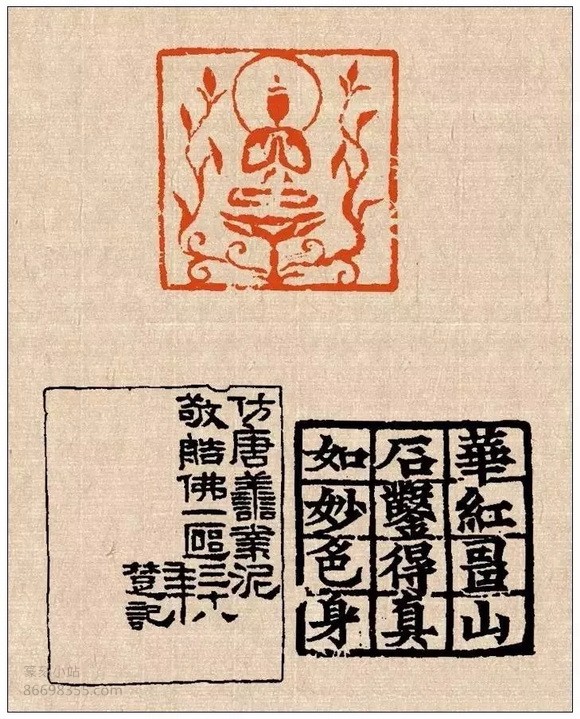 仿唐譱業泥
敬艁佛一區三十八
年
登記
華紅山
石鑿得真
如妙色身
篆刻小站
86698355.com